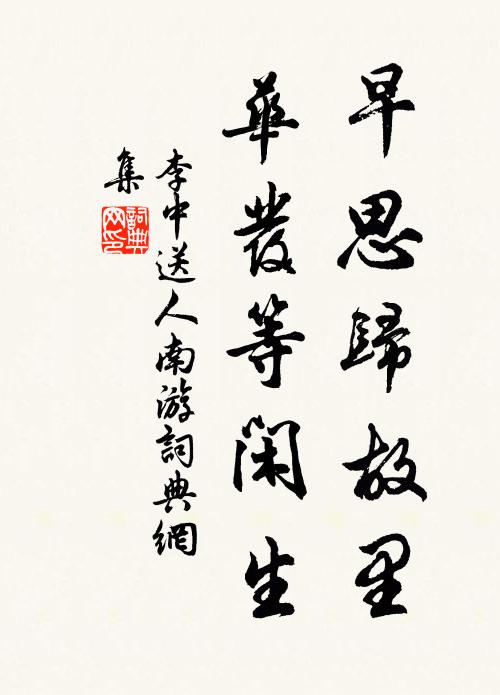 早思歸故里
華發等閑生
李中送人南游詞典網
集
詞典
网印